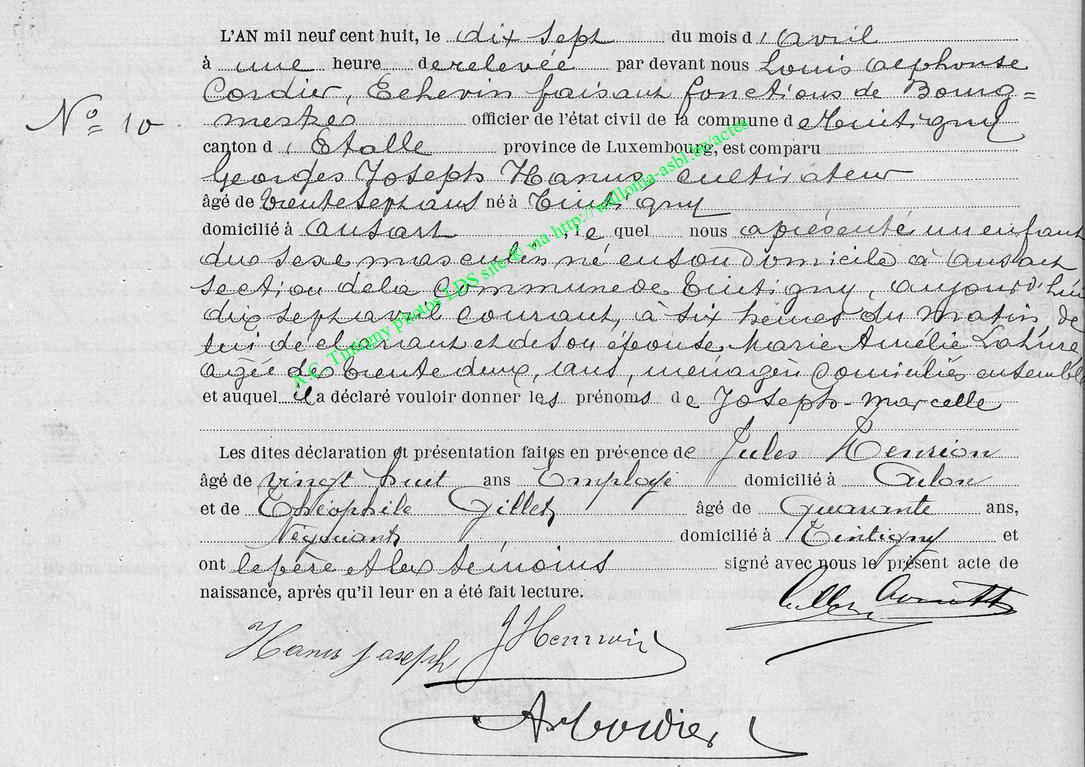 L'AN mil neuf cent huit, le dix sept du mois d'avril
à une heure de relevée par devant nous Louis Alphonse
Cordier, Echevin faisant fonctions de Bourg=
mestre officier de l'état civil de la commune de Tintigny
N° 10
canton d'Etalle province de Luxembourg, est comparu
Georges Joseph Hanus cultivateur
âgé de trente sept ans né à Tintigny
domicilié à Ansart, le quel nous a présenté un enfant
du sexe masculin né en son domicile à Ansart
section de la commune de Tintigny, aujourd'hui
dix sept avril courant, à six heures du matin, de
lui declarant et de son épouse Marie Amélie
agée de trente deux, ans, ménagère domiciliés ensemble
et auquel il a déclaré vouloir donner les prénoms de Joseph-Marcelle
Les dites déclaration et présentation faites en présence de Jules Henrion
âgé de vingt huit ans Employé domicilié à Arlon
et de Théophile Gillet âgé de Quarante ans,
Négociant domicilié à Tintigny et
ont le père et les témoins signé avec nous le présent acte de
naissance, après qu'il leur en a été fait lecture.
Hanus Joseph J Henrion
A Cordier
A.C. Tintigny photos LDS site © via http://wallonia-asbl.be/actes